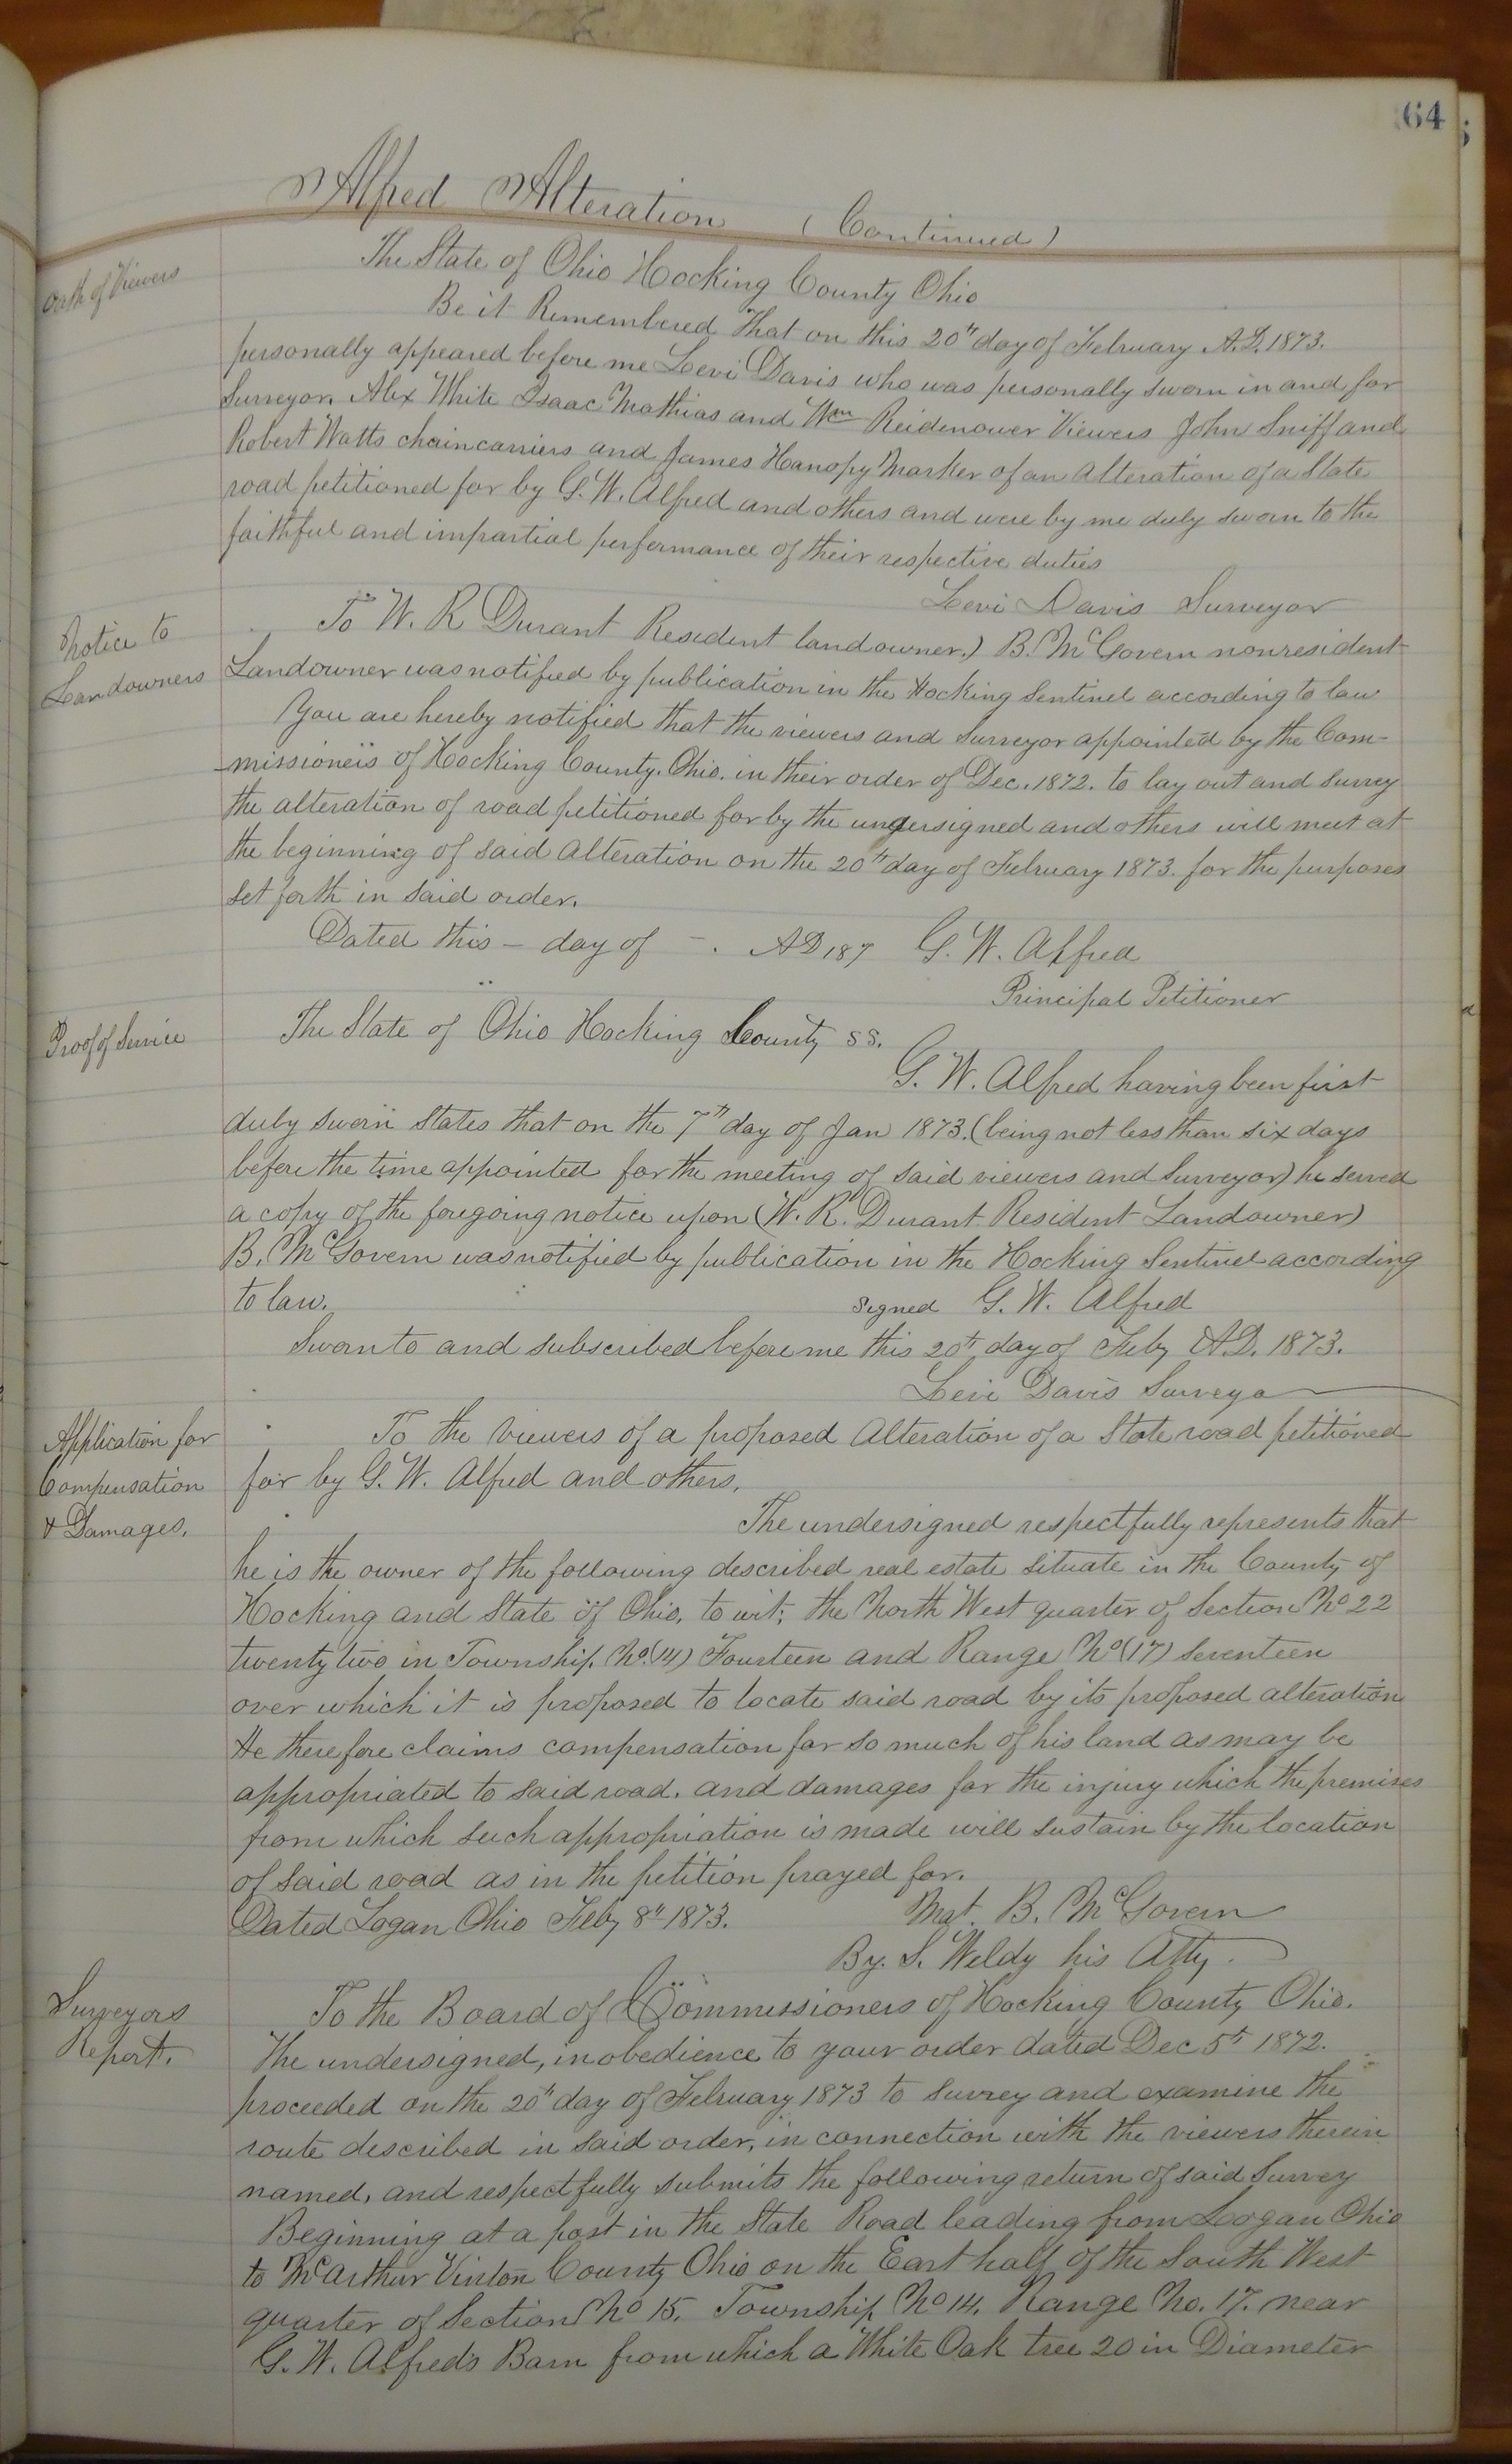 64
Alfred Alteration (Continued)
Oath of Viewers
The State of Ohio Hocking County Ohio
Be it Remembered That on this 20th day of February A.D. 1873.
personally appeared before me Levi Davis who was personally sworn in and for
Surveyor. Alex White Isaac Mathias and Wm Reidenower Viewers John Sniff and
Robert Watts chaincarriers and James Hanopy Marker of an Alteration of a State
road petitioned for by G. W. Alfred and others and were by me duly sworn to the
faithful and impartial performance of their respective duties
Levi Davis Surveyor
Notice to
Landowners
To W. R Durant Resident landowner.) B. McGovern nonresident
Landowner was notified by publication in the Hocking Sentinel according to law
You are hereby notified that the viewers and Surveyor appointed by the Com-
-missioners of Hocking County. Ohio. in their order of Dec. 1872. to lay out and Survey
the alteration of road petitioned for by the undersigned and others will meet at
the beginning of said Alteration on the 20th day of February 1873. for the purposes
set forth in said order.
Dated this - day of - . AD 187 G. W. Alfred
Principal Petitioner
Proof of Service
The State of Ohio Hocking County SS.
G. W. Alfred having been first
duly sworn States that on the 7th day of Jan 1873. (being not less than six days
before the time appointed for the meeting of said viewers and Surveyor) he served
a copy of the foregoing notice upon (W. R. Durant Resident Landowner)
B. McGovern was notified by publication in the Hocking Sentinel according
to law.
Signed G. W. Alfred
Sworn to and subscribed before me this 20th day of Feby A.D. 1873.
Levi Davis Surveyo
Application for
Compensation
& Damages.
To the Viewers of a proposed Alteration of a State road petitioned
for by G. W. Alfred and others.
The undersigned respectfully represents that
he is the owner of the following described real estate situate in the County of
Hocking and State of Ohio, to wit; the North West quarter of Section No 22
twenty two in Township No. (14) Fourteen and Range No (17) Seventeen
over which it is proposed to locate said road by its proposed alteration
He therefore claims compensation for so much of his land as may be
appropriated to said road. and damages for the injury which the premises
from which such appropriation is made will sustain by the location
of said road as in the petition prayed for.
Dated Logan Ohio Feby 8th 1873.
Mat. B. McGovern
By. S. Weldy his Atty.
Surveyors
Report.
To the Board of Commissioners of Hocking County Ohio.
The undersigned, in obedience to your order dated Dec 5th 1872.
proceeded on the 20th day of February 1873 to Survey and examine the
route described in said order, in connection with the viewers therein
named, and respectfully submits the following return of said Survey
Beginning at a post in the State Road leading from Logan Ohio
to McArthur Vinton County Ohio on the East half of the South West
quarter of Section No 15. Township No 14. Range No. 17. near
G. W. Alfred's Barn from which a White Oak tree 20 in Diameter